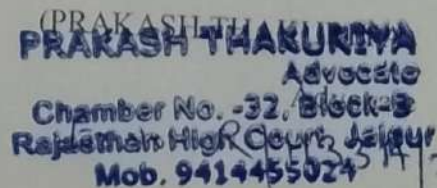 (PRAKASH TH
PRAKASH THAKURIYA
Advocate
Chamber No. -32, Block-B
Rajasthan High Court, Jaipur
Mob. 9414455024